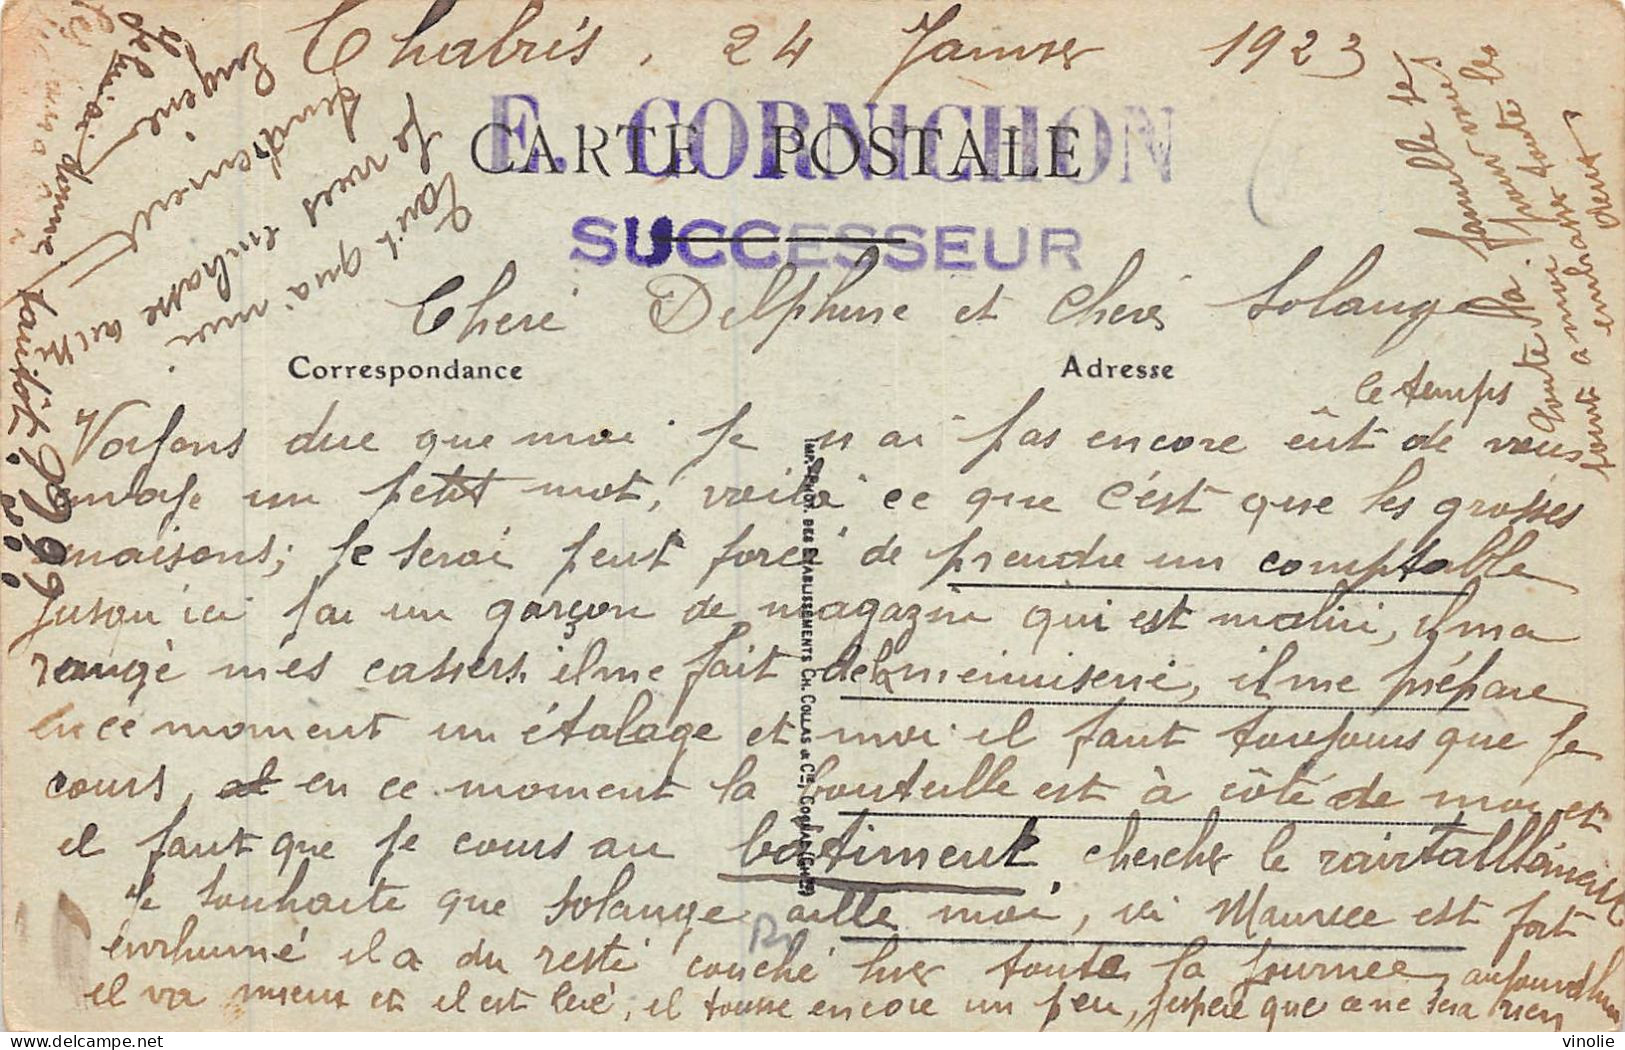 Chabris, 24 Janvier 1923
E. CORNICHON
CARTE POSTALE
SUCCESSEUR
Cheré Delphine et cheré Solange
Correspondance
Adresse
le temps
Voyons due que moi je n ai pas encore eût de vous
un petit mot, voilà ce que c'est que les grosses
maisons; je serai peut forcé de prendre un comptable
jusqu'ici j'ai un garçon de magazin qui est malin, il m a
rangé mes casiers, il me fait de la menuiserie, il me prépare
en ce moment un étalage et moi il faut toujours que je
cours, et en ce moment la bouteille est à côté de moi et
il faut que je cours au batiment chercher le
je souhaite que Solange aille moi, ici Maurice est fort
enrhumé il a du resté couché hier toute la journee aujourd'hui
il va mieux et il est levé, il tousse encore un peu, j'espère que ce ne sera rien
famille se
pour vous
la
toute la
tout a
embrasse
deux
Tout qu'a moi
je vous embrasse aussi
tendrement
Eugène
donne
IMP. PHOT. DES ETABLISSEMENTS CH. COLLAS & Cie, COGNAC
vinolie